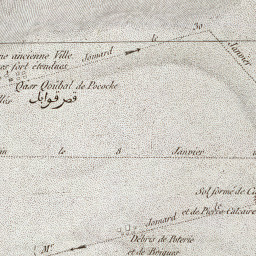 le 30
ne ancienne Ville
Jomard
Janvier
es fort étendues
Qasr Qoubal de Pococke
قصر قوابل
le 8 Janvier
Sol formé de
et de Pierre Calcaire
Jomard
Débris de Poterie
et de Briques
Mr